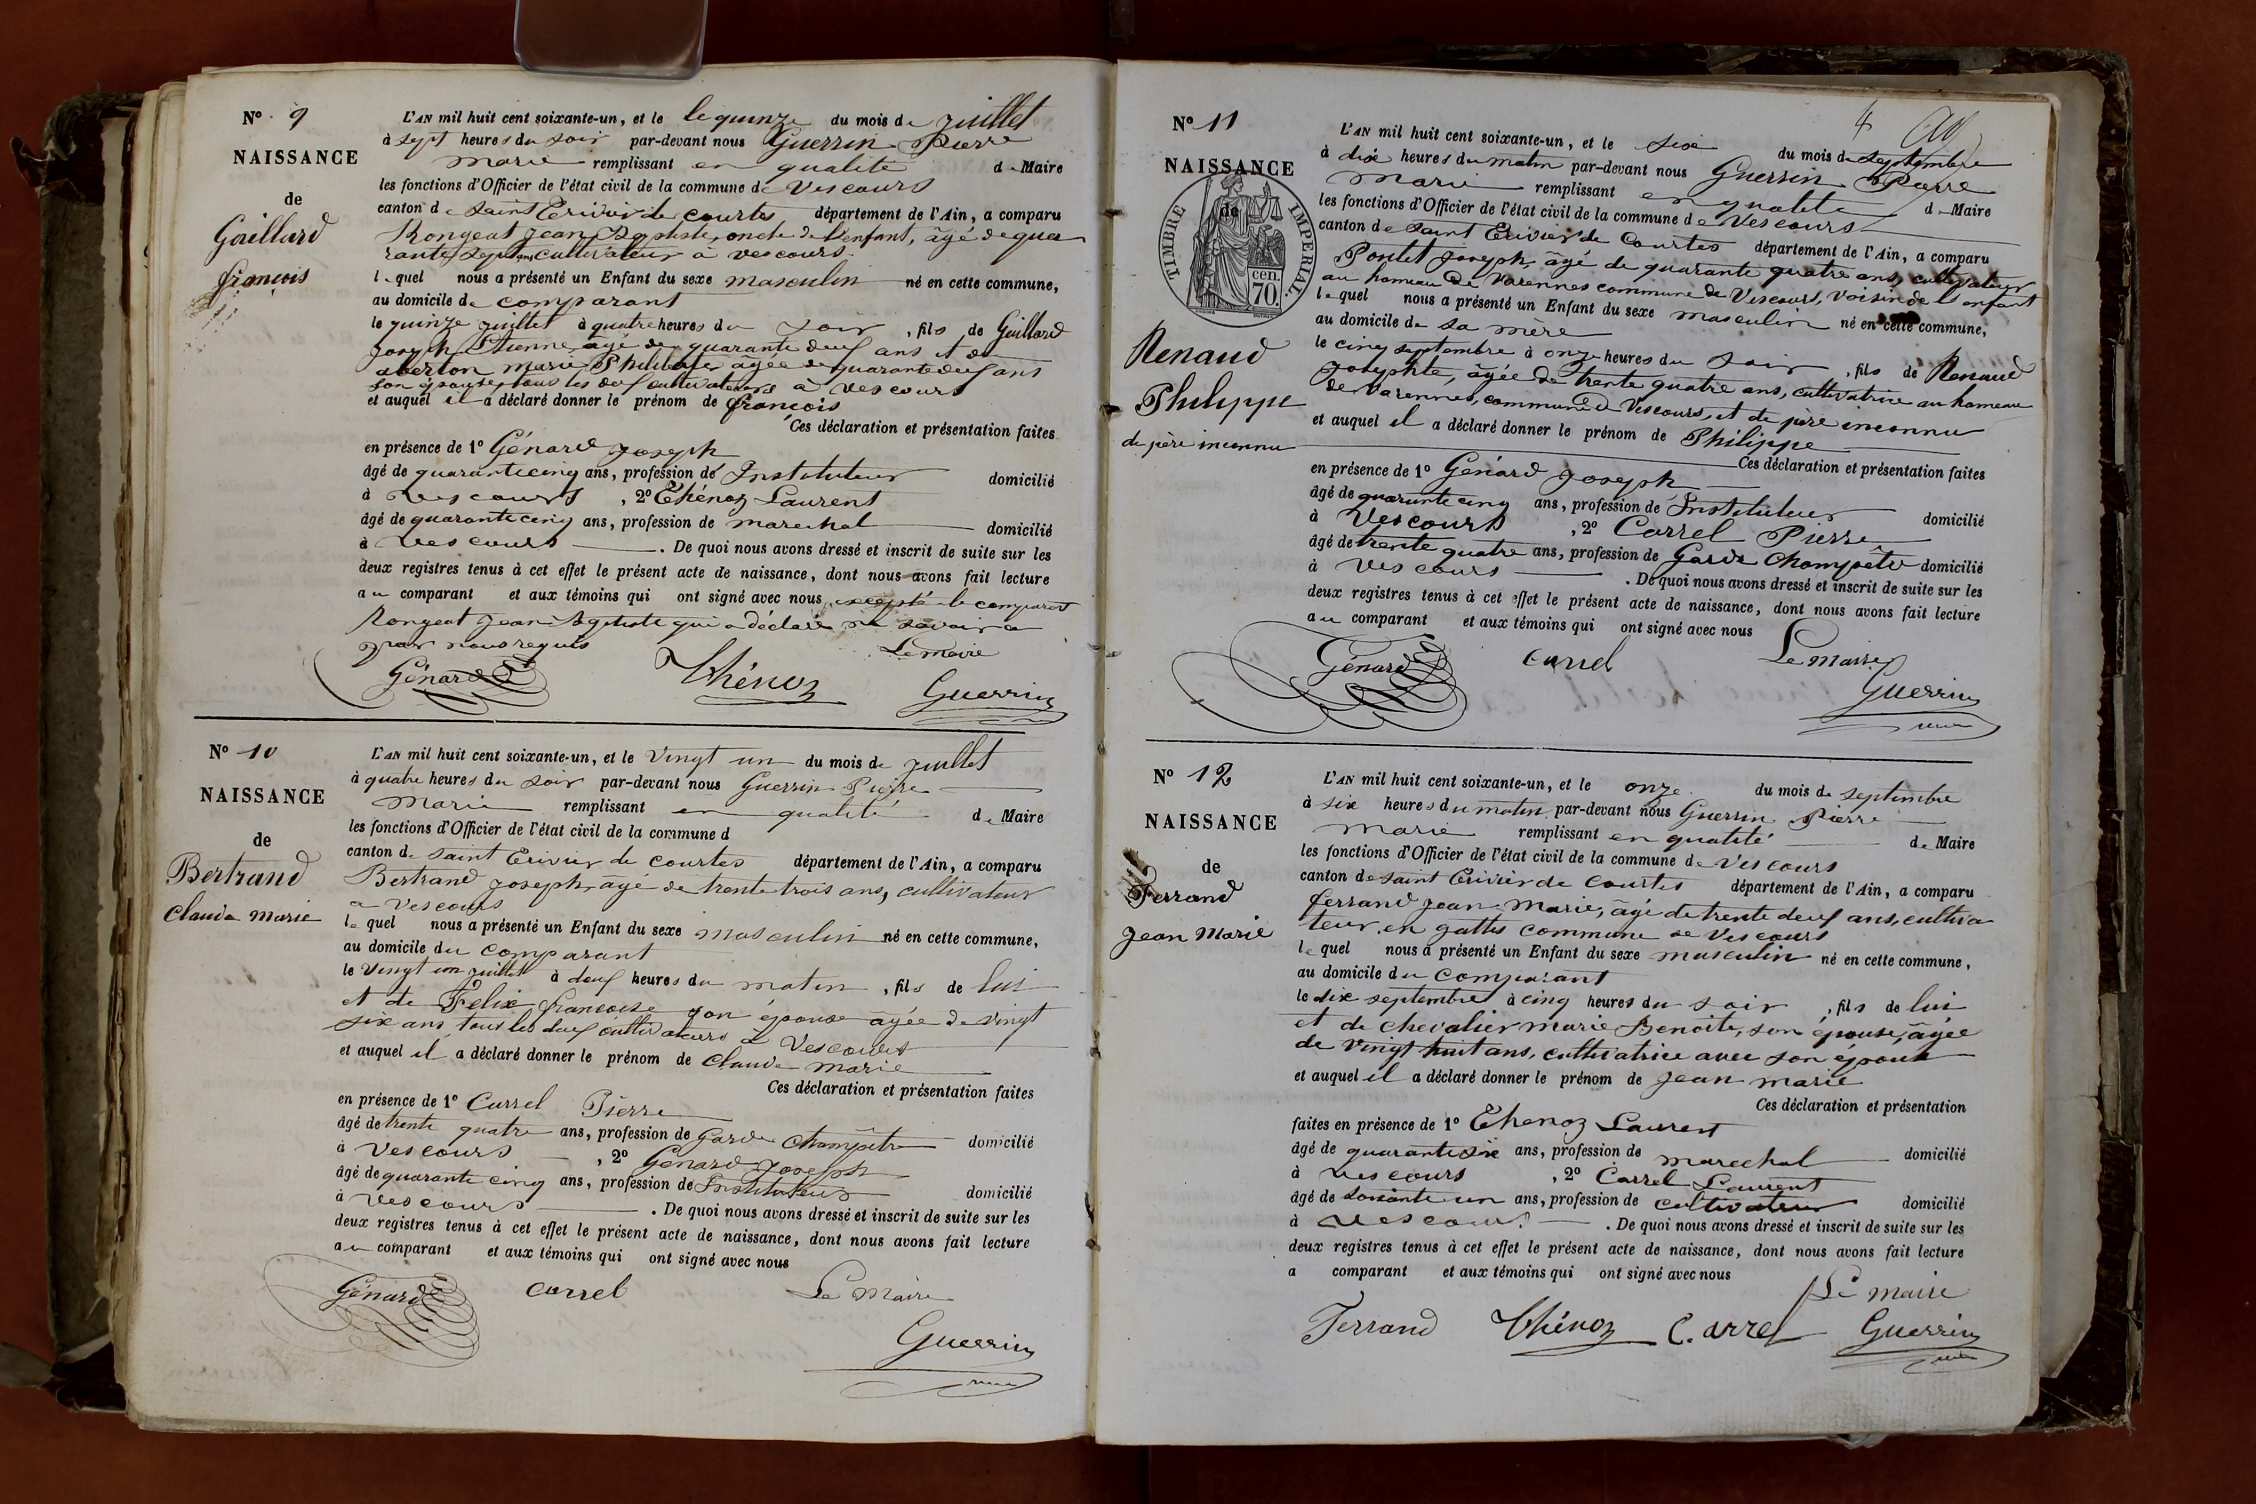 N° 9
NAISSANCE
de
Gaillard
françois
L'AN mil huit cent soixante-un, et le le quinze du mois de juillet
à sept heures du soir par-devant nous Guerrin Pierre
Marie remplissant en qualité de Maire
les fonctions d'Officier de l'état civil de la commune de Vescours
canton de Saint Trivier de Courtes département de l'Ain, a comparu
Rongeat Jean Baptiste, oncle de l'enfant, âgé de qua
rante sept ans cultivateur à Vescours
lequel nous a présenté un Enfant du sexe masculin né en cette commune,
au domicile de comparant
le quinze juillet à quatre heures du soir, fils de Gaillard
Joseph Etienne âgé de quarante deux ans et de
marie Philiberte âgée de quarante deux ans
son épouse, tous les deux cultivateurs à Vescours
et auquel il a déclaré donner le prénom de françois
Ces déclaration et présentation faites
en présence de 1° Génard Joseph
âgé de quarante cinq ans, profession de Instituteur domicilié
à Vescours, 2° Thénoz Laurent
âgé de quarante cinq ans, profession de marechal domicilié
à Vescours. De quoi nous avons dressé et inscrit de suite sur les
deux registres tenus à cet effet le présent acte de naissance, dont nous avons fait lecture
au comparant et aux témoins qui ont signé avec nous excepté le comparant
Rongeat Jean Baptiste qui a déclaré ne savoir a
par nous requis
Le maire
Génard Thénoz Guerrin
N° 10
NAISSANCE
de
Bertrand
Claude Marie
L'AN mil huit cent soixante-un, et le Vingt un du mois de juillet
à quatre heures du soir par-devant nous Guerrin Pierre
Marie remplissant en qualité de Maire
les fonctions d'Officier de l'état civil de la commune d
canton de Saint Trivier de Courtes département de l'Ain, a comparu
Bertrand Joseph, âgé de trente trois ans, cultivateur
a Vescours
lequel nous a présenté un Enfant du sexe masculin né en cette commune,
au domicile du comparant
le Vingt un juillet à deux heures du matin, fils de lui
et de Felix françoise son épouse âgée de vingt
six ans, tous les deux cultivateurs à Vescours
et auquel il a déclaré donner le prénom de Claude Marie
Ces déclaration et présentation faites
en présence de 1° Carrel Pierre
âgé de trente quatre ans, profession de Garde Champêtre domicilié
à Vescours, 2° Génard Joseph
âgé de quarante cinq ans, profession de Instituteur domicilié
à Vescours. De quoi nous avons dressé et inscrit de suite sur les
deux registres tenus à cet effet le présent acte de naissance, dont nous avons fait lecture
au comparant et aux témoins qui ont signé avec nous
Génard Carrel Le Maire
Guerrin
4
N° 11
NAISSANCE
de
TIMBRE IMPERIAL.
cen.
70.
Renaud
Philippe
de père inconnu
L'AN mil huit cent soixante-un, et le six du mois de septembre
à dix heures du matin par-devant nous Guerrin Pierre
Marie remplissant en qualité de Maire
les fonctions d'Officier de l'état civil de la commune de Vescours
canton de Saint Trivier de Courtes département de l'Ain, a comparu
Pontet Joseph, âgé de quarante quatre ans, cultivateur
au hameau de Varennes commune de Vescours, voisin de l'enfant
lequel nous a présenté un Enfant du sexe masculin né en cette commune,
au domicile de sa mère
le cinq septembre à onze heures du soir, fils de Renaud
Josephte, âgée de trente quatre ans, cultivatrice au hameau
de Varennes, commune de Vescours, et de père inconnu
et auquel il a déclaré donner le prénom de Philippe
Ces déclaration et présentation faites
en présence de 1° Génard Joseph
âgé de quarante cinq ans, profession de Instituteur domicilié
à Vescours, 2° Carrel Pierre
âgé de trente quatre ans, profession de Garde Champêtre domicilié
à Vescours. De quoi nous avons dressé et inscrit de suite sur les
deux registres tenus à cet effet le présent acte de naissance, dont nous avons fait lecture
au comparant et aux témoins qui ont signé avec nous
Génard Carrel Le Maire
Guerrin
N° 12
NAISSANCE
de
Ferrand
Jean Marie
L'AN mil huit cent soixante-un, et le onze du mois de septembre
à six heures du matin par-devant nous Guerrin Pierre
Marie remplissant en qualité de Maire
les fonctions d'Officier de l'état civil de la commune de Vescours
canton de Saint Trivier de Courtes département de l'Ain, a comparu
ferrand Jean Marie, âgé de trente deux ans, cultiva
teur en gattes commune de Vescours
lequel nous a présenté un Enfant du sexe masculin né en cette commune,
au domicile du comparant
le dix septembre à cinq heures du soir, fils de lui
et de Chevalier Marie Benoite, son épouse, âgée
de vingt huit ans, cultivatrice avec son époux
et auquel il a déclaré donner le prénom de Jean Marie
Ces déclaration et présentation
faites en présence de 1° Thenoz Laurent
âgé de quarante six ans, profession de marechal domicilié
à Vescours, 2° Carrel Laurent
âgé de soixante un ans, profession de cultivateur domicilié
à Vescours. De quoi nous avons dressé et inscrit de suite sur les
deux registres tenus à cet effet le présent acte de naissance, dont nous avons fait lecture
a comparant et aux témoins qui ont signé avec nous
Le maire
Ferrand Thénoz C. arrel Guerrin